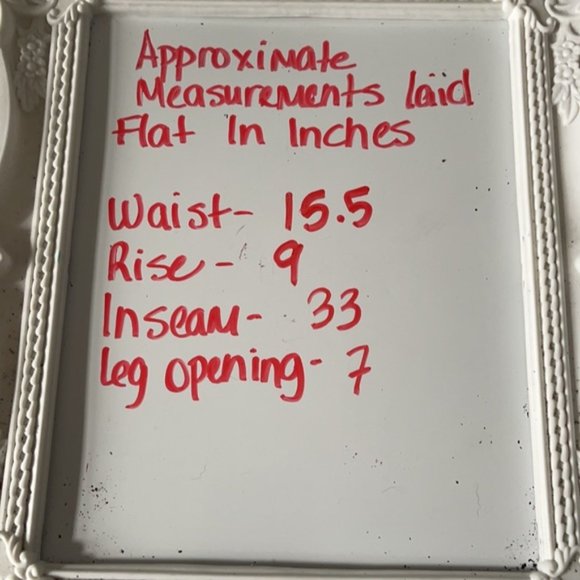 Approximate
Measurements laid
Flat In Inches
Waist- 15.5
Rise - 9
Inseam- 33
leg opening- 7